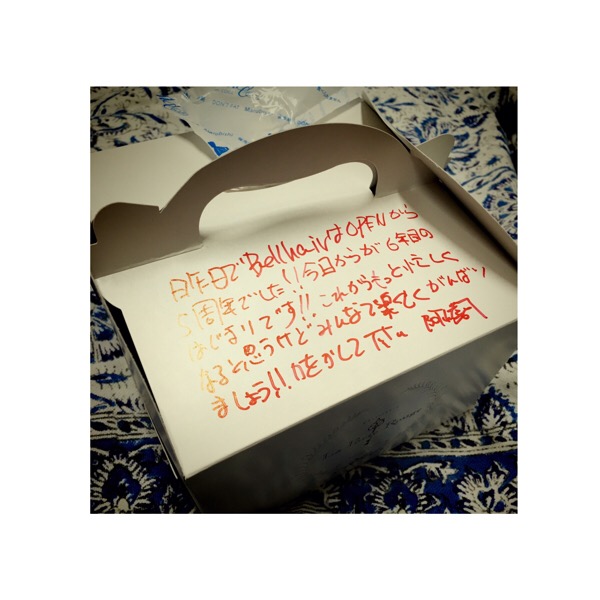 昨日でBellhairはOPENから
5周年でした!!今日からが6年目の
はじまりです!!これからもっと忙しく
なると思うけどみんなで楽しくがんばり
ましょう!!力をかして下さい